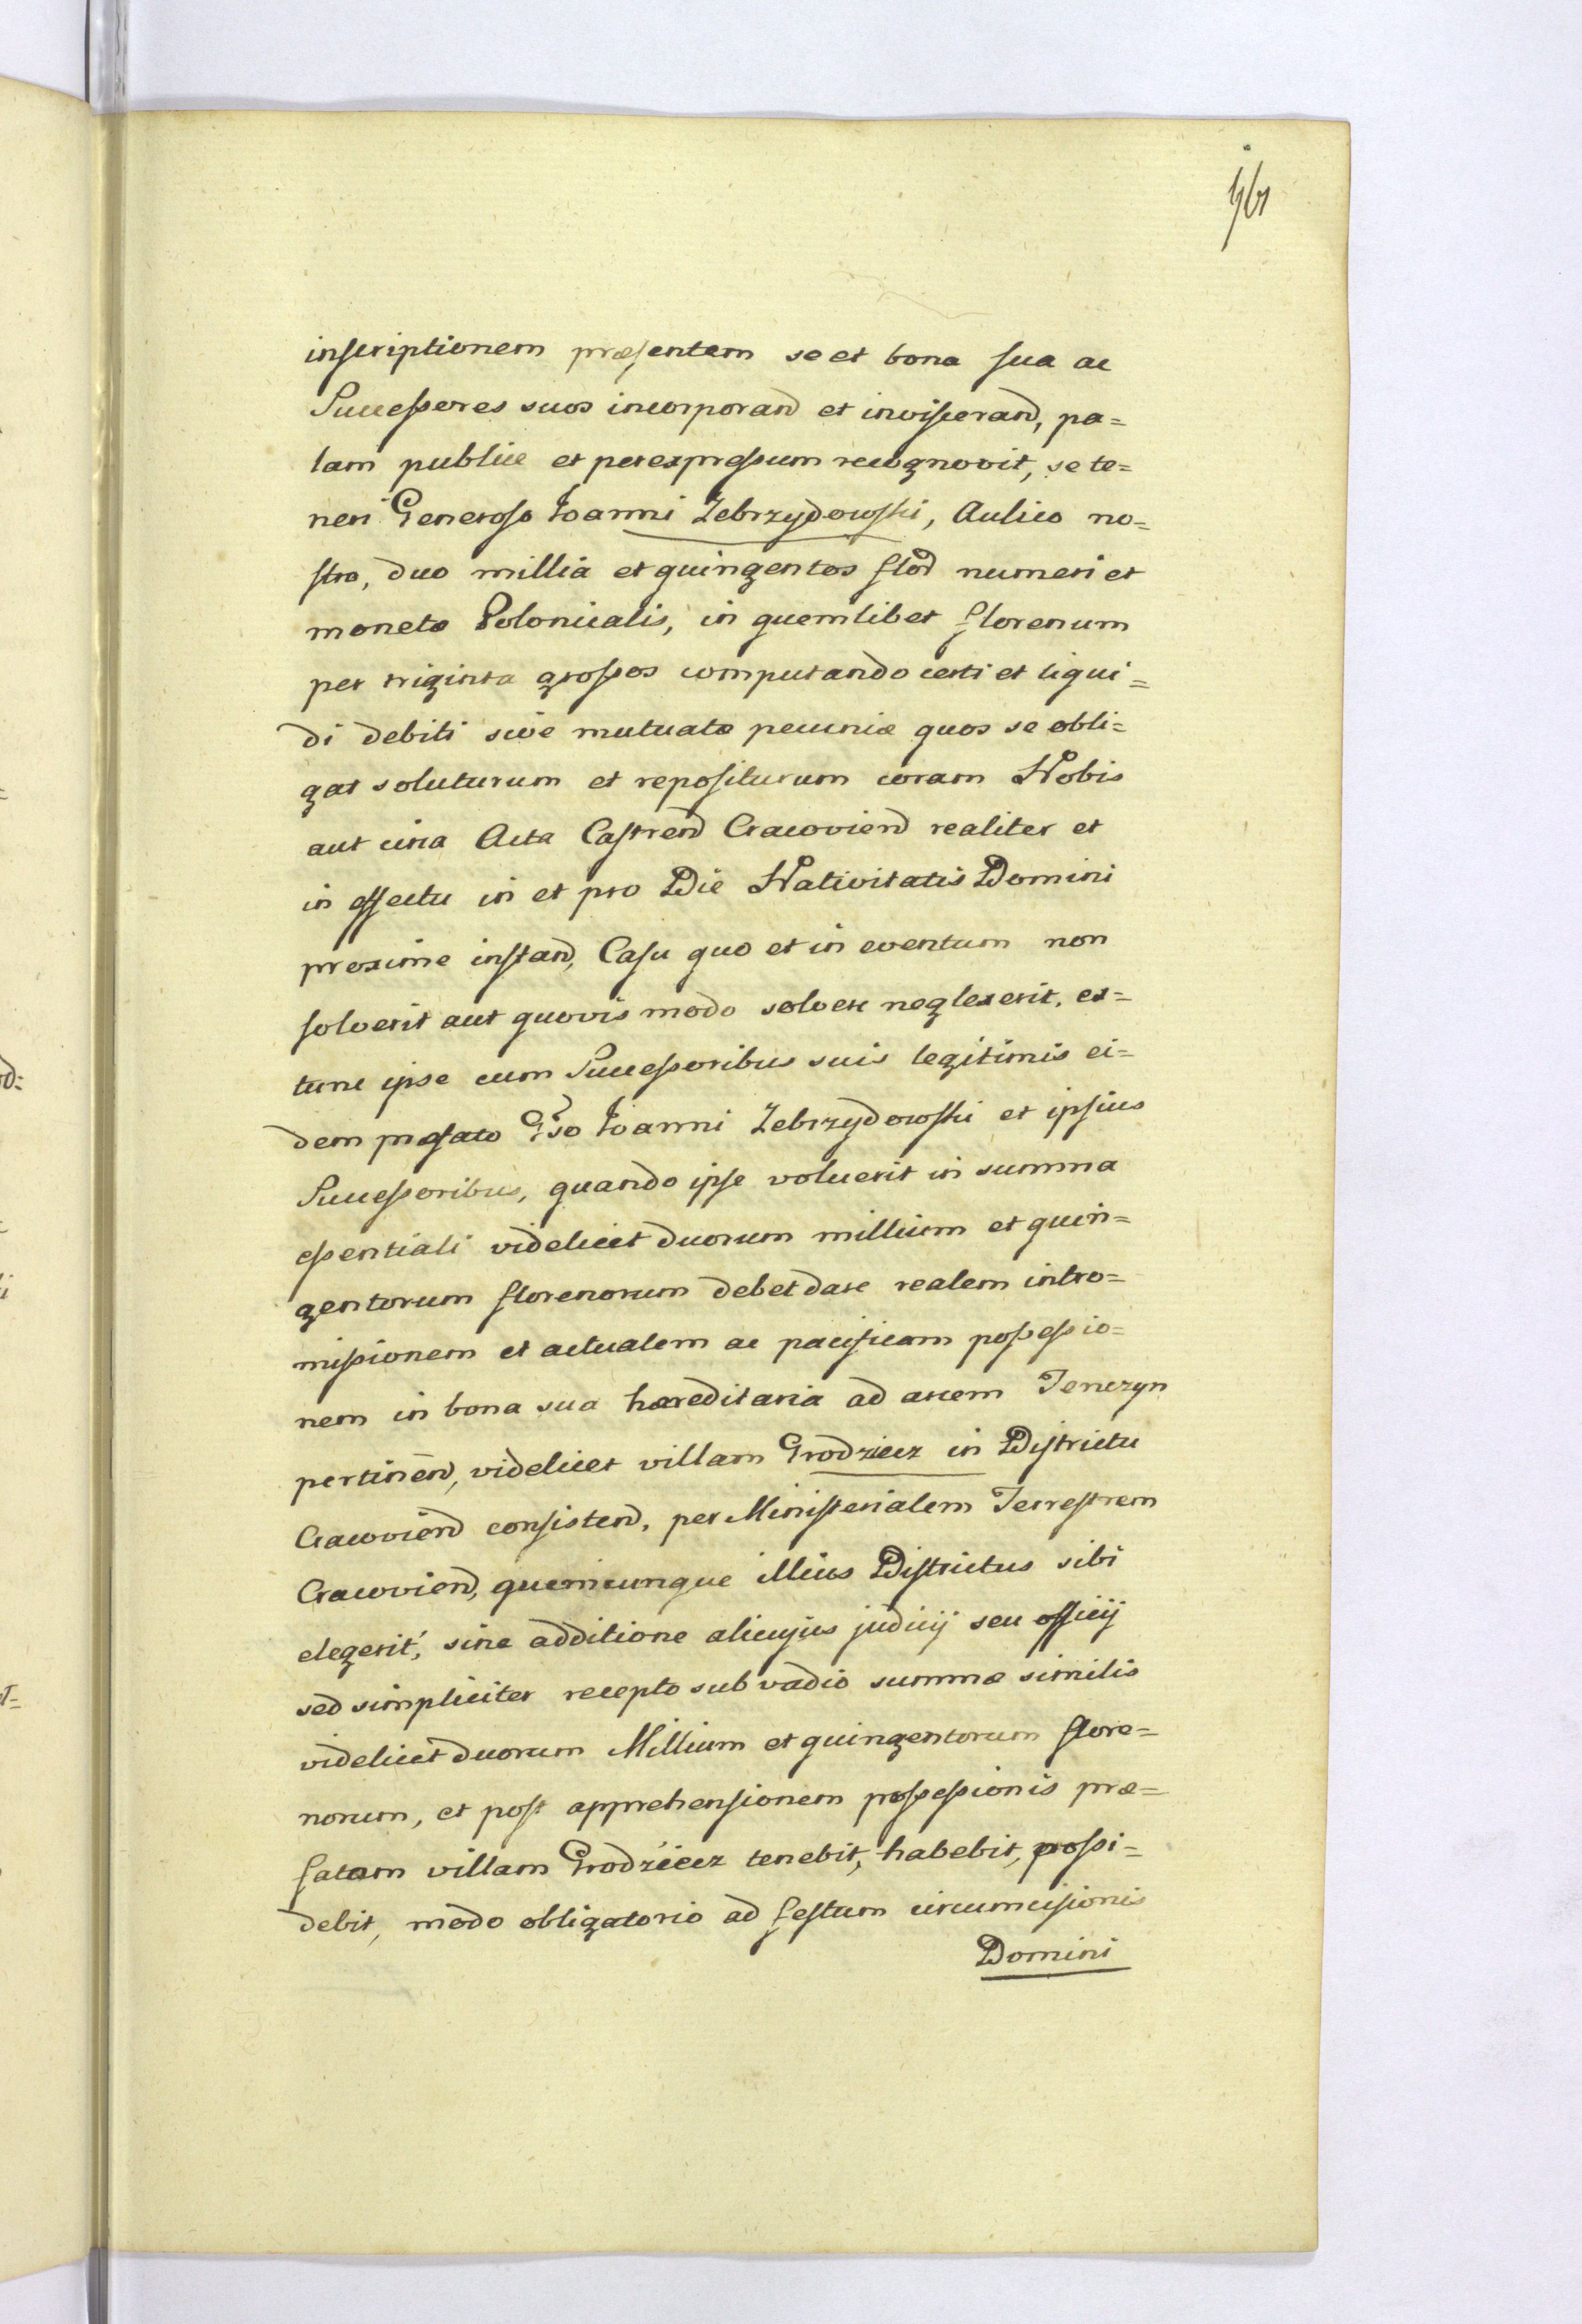 inscriptionem præsentem se et bona sua ac
Successores suos incorporand et inviscerand, pa=
lam publice et per expressum recognovit, se te=
neri Generoso Joanni Zebrzydowski, Aulico no=
stro, duo millia et quingentos flod numeri et
monetæ Polonicalis, in quemlibet florenum
per triginta grossos computando certi et liqui=
di debiti sive mutuatæ pecuniæ quos se obli=
gat soluturum et repositurum coram Nobis
aut circa Acta Castrend Cracoviend realiter et
in effectu in et pro Die Nativitatis Domini
proxime instand, Casu quo et in eventum non
solverit aut quovis modo solvere neglexerit, ex=
tunc ipse cum Successoribus suis legitimis ei=
dem præfato Gso Joanni Zebrzydowski et ipsius
Successoribus, quando ipse voluerit in summa
essentiali videlicet duorum millium et quin=
gentorum florenorum debet dare realem intro=
missionem et actualem ac pacificam possessio=
nem in bona sua hæreditaria ad arcem Tenczyn
pertinend, videlicet villam Grodziecz in Districtu
Cracoviend consistend, per Ministerialem Terrestrem
Cracoviend, quemcunque illius Districtus sibi
elegerit, sine additione alicujus judicij seu officij
sed simpliciter recepto sub vadio summæ similis
videlicet duorum Millium et quingentorum flore=
norum, et post apprehensionem possessionis præ=
fatam villam Grodziecz tenebit, habebit, possi=
debit, modo obligatorio ad festum circumcisionis
Domini